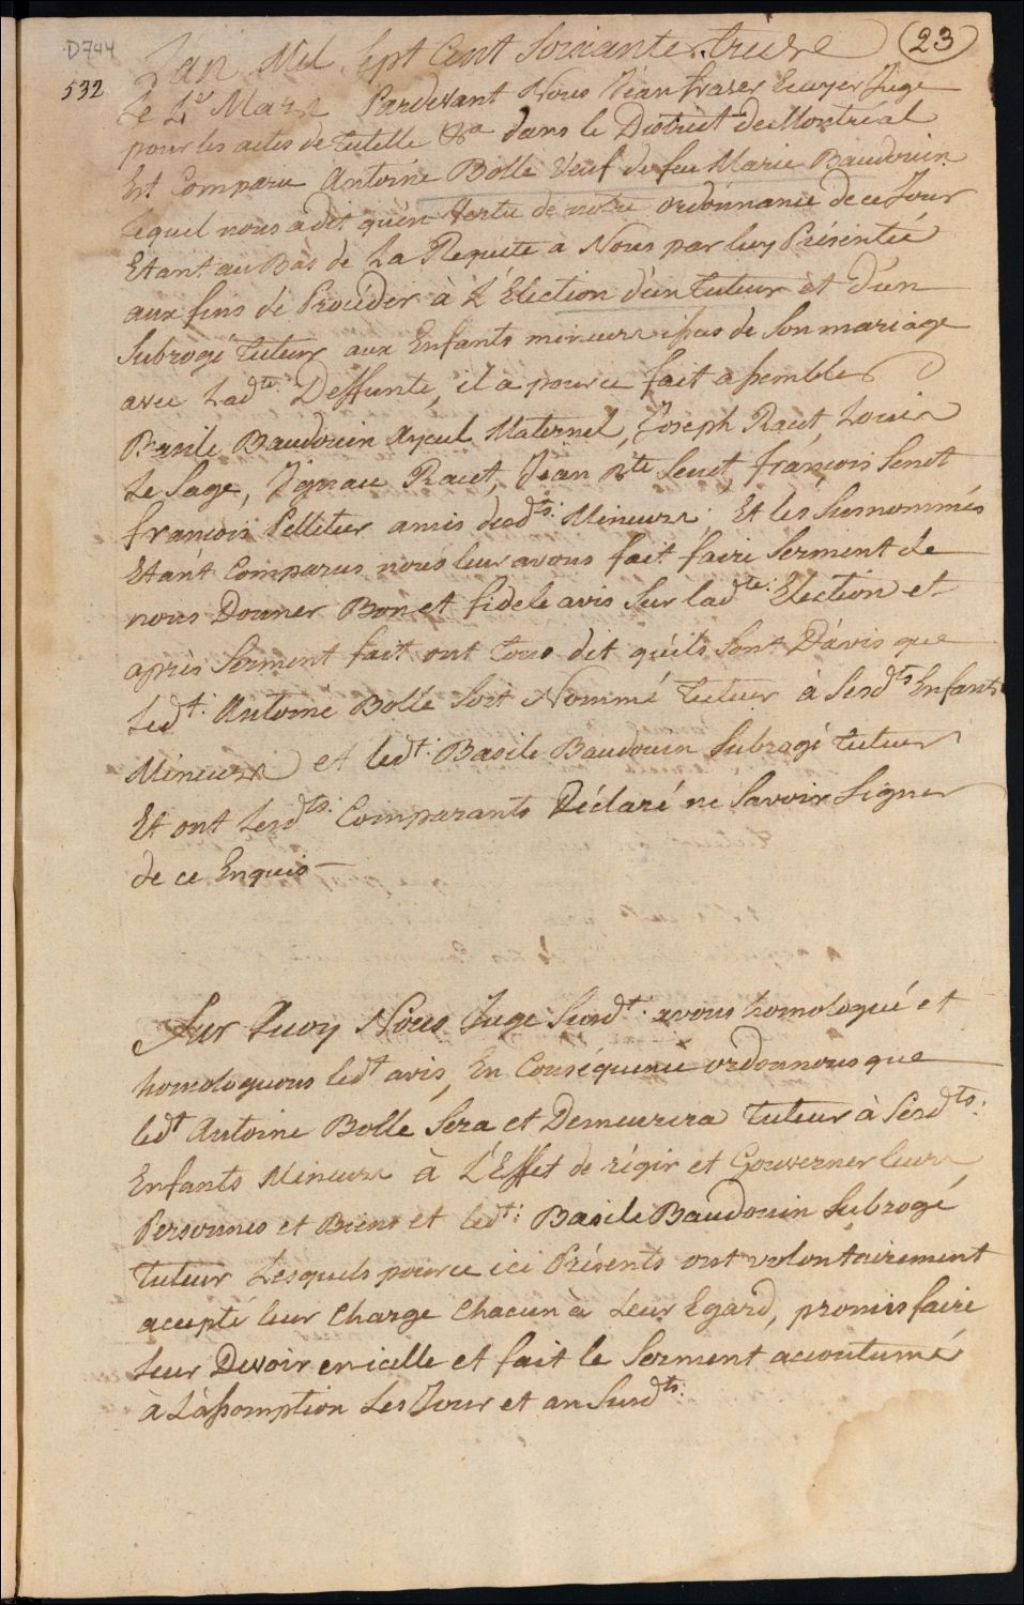 D744
23
532
L'an Mil Sept Cent Soixante treize
Le 1er Mars Pardevant Nous Jean fraser Ecuyer Juge
pour les actes de tutelle &a dans le District de Montréal
Est Comparu Antoine Bolle Veuf de feu Marie Baudouin
lequel nous a dit qu'en Vertu de notre ordonnance de ce Jour
Etant au Bas de La Requete a Nous par luy Présentée
aux fins de Procéder à L'Election d'un tuteur et d'un
Subrogé tuteur aux Enfants mineurs issus de Son mariage
avec Ladte. Deffunte, il a pource fait assembler
Basile Baudouin Ayeul Maternel, Joseph Racet, Louis
Le Sage, Ignace Racet, Jean Bte Senet, françois Senet
françois Pelletier amis desdts. Mineurs; Et les Surnommés
Etant Comparus nous leur avons fait faire Serment de
nous Donner Bon et fidele avis Sur ladte. Election et
après Serment fait ont tous dit qu'ils Sont D'avis que
Ledt. Antoine Bolle Soit Nommé tuteur à Sesdts Enfants
Mineurs et ledt. Basile Baudouin Subrogé tuteur
Et ont Lesdts. Comparants Déclaré ne Savoir Signer
de ce Enquis
Sur Quoy Nous Juge Susdt. avons homologué et
homologuons ledt avis, En Conséquence ordonnons que
ledt Antoine Bolle Sera et Demeurera tuteur à Sesdts.
Enfants Mineurs à L'Effet de régir et Gouverner leurs
Personnes et Biens et ledt. Basile Baudouin Subrogé
tuteur Lesquels pource ici Présents ont volontairement
accepté leur Charge Chacun à Leur Egard, promis faire
Leur Devoir en icelle et fait le Serment accoutumé
à L'assomption Les Jour et an Susdts.